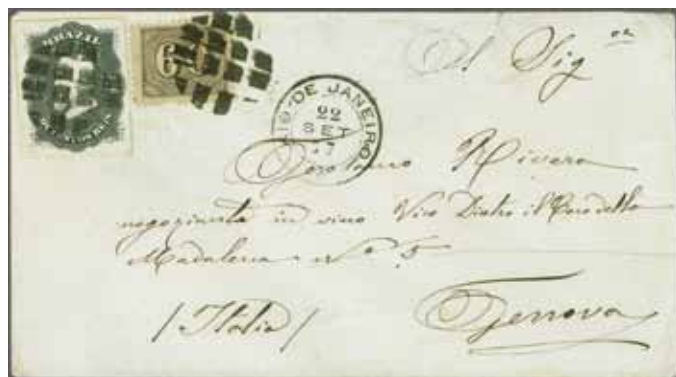 BRAZIL
RIO DE JANEIRO
22
SET
Al Sig.or
Rivera
negoziante in vino Vico Dietro il Coro della
Madalena N.o 5
/Italia/ Genova